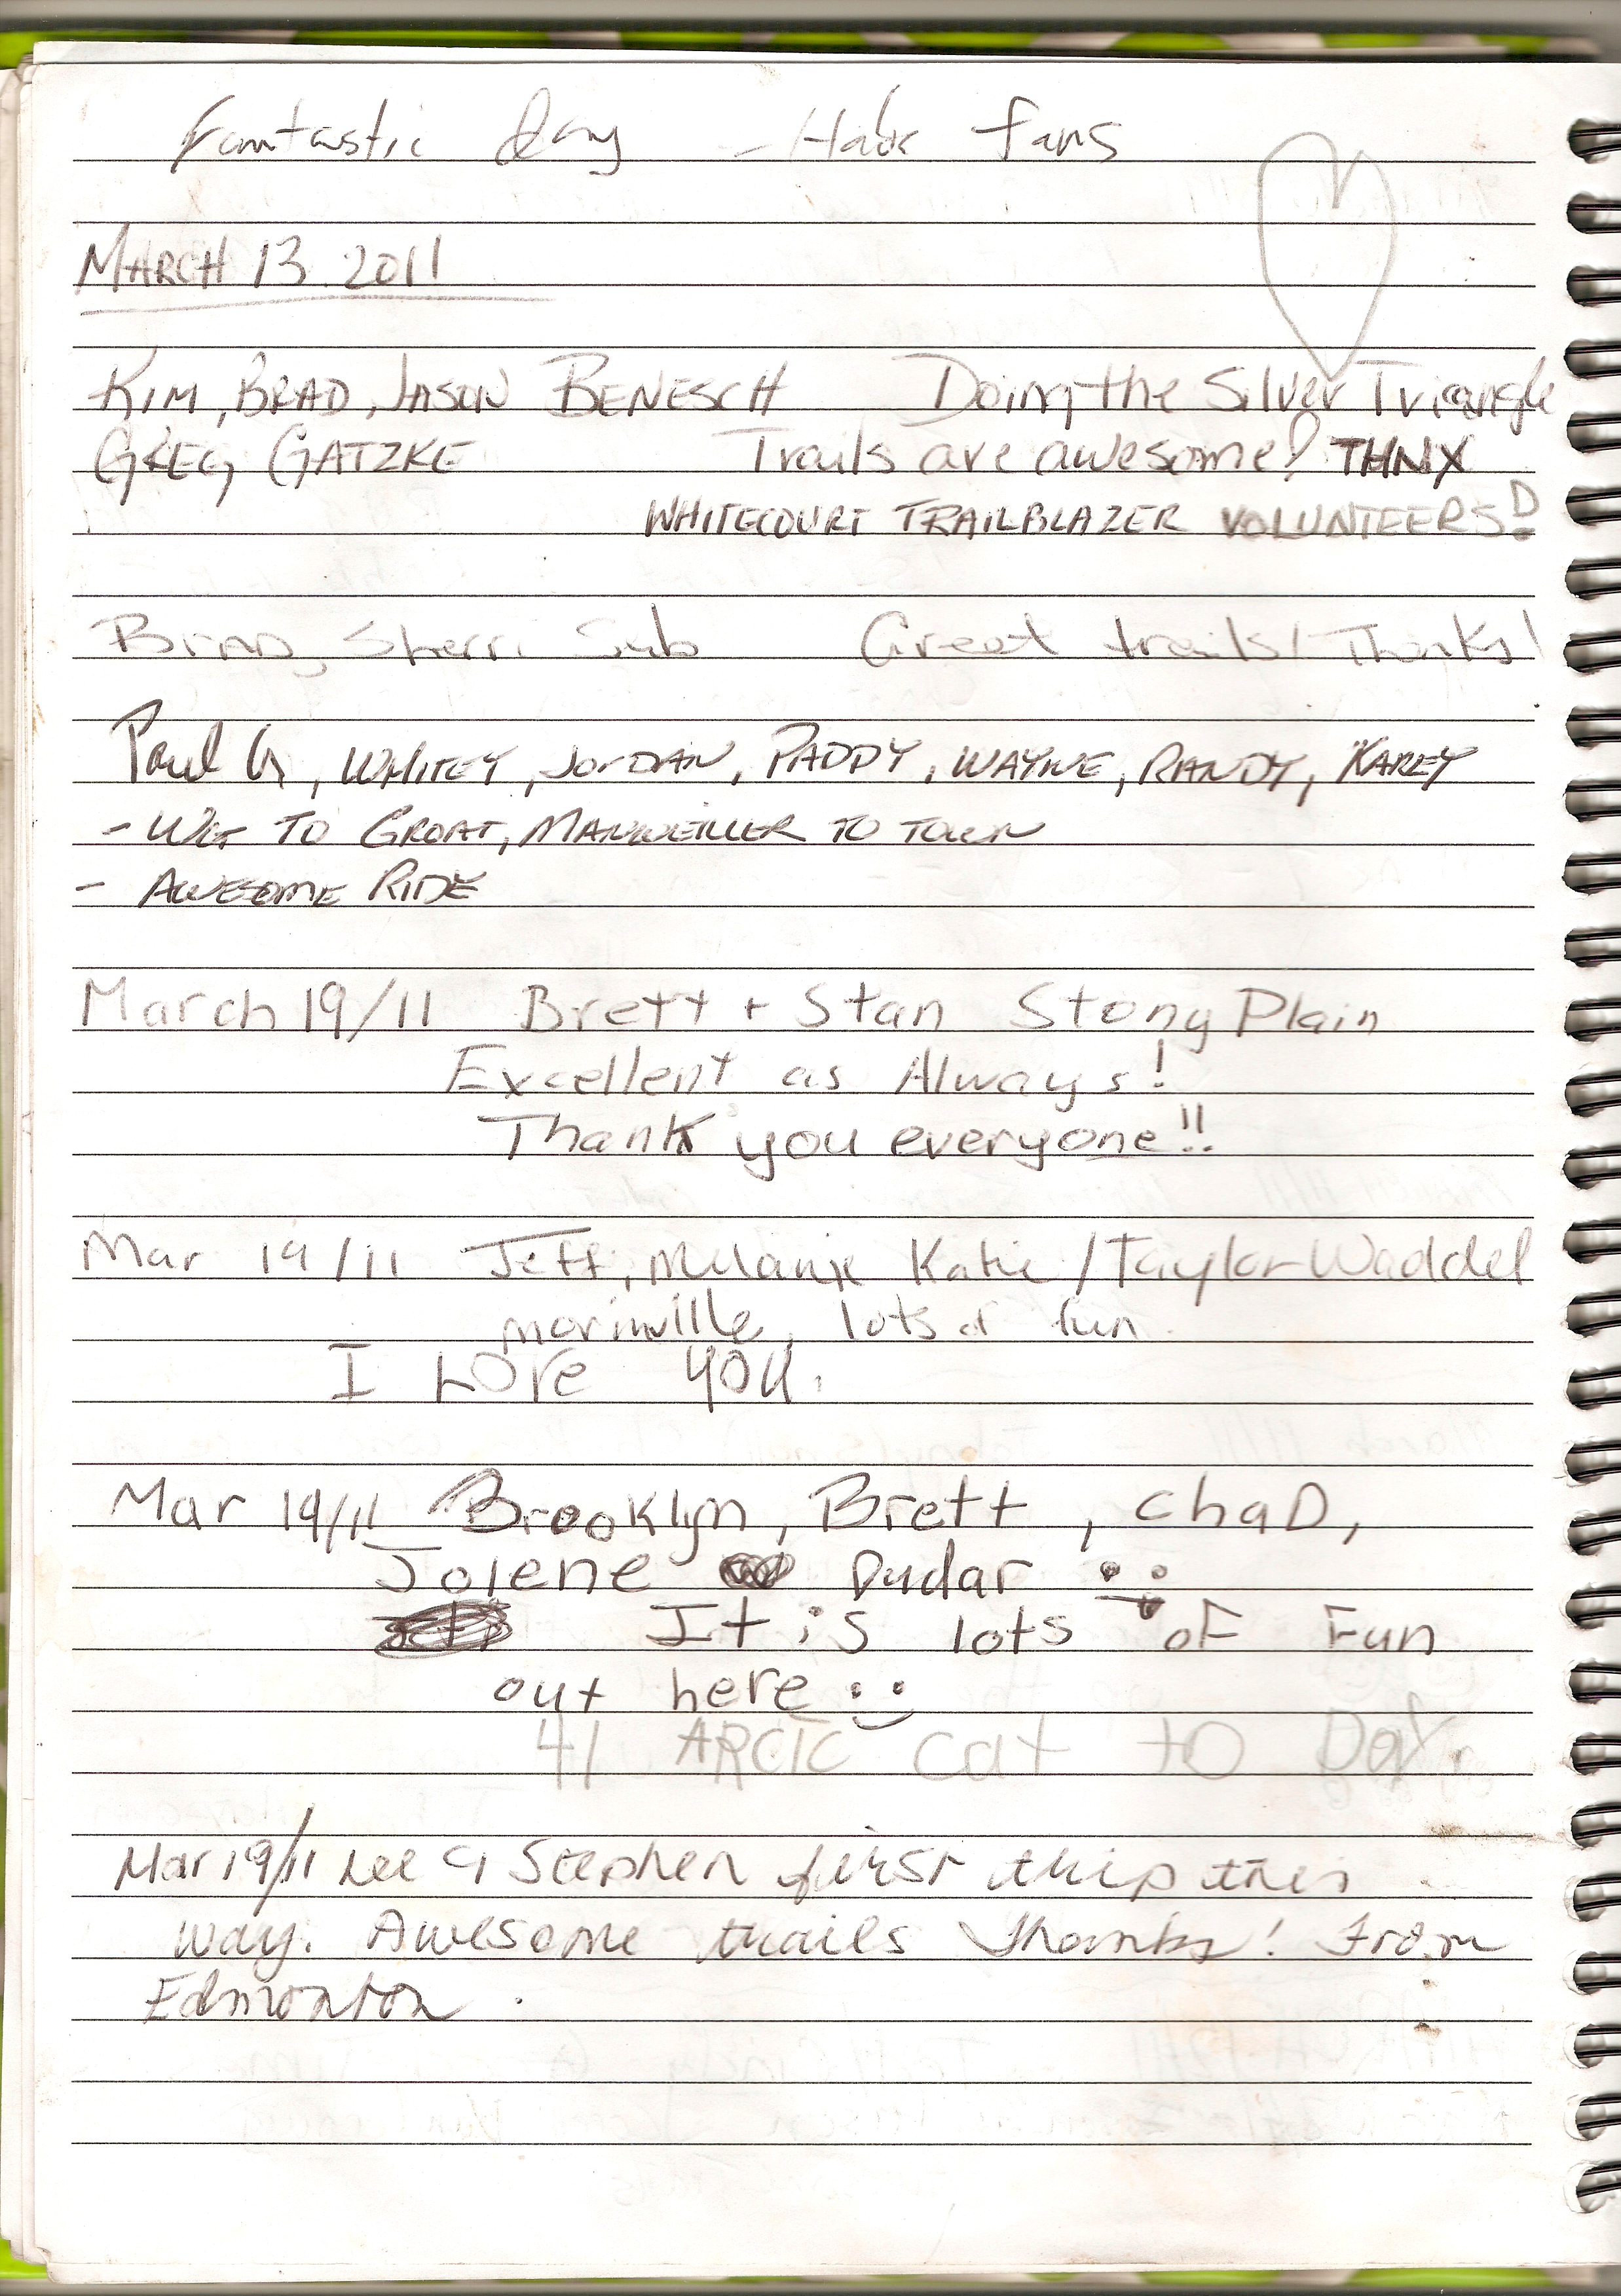 Fantastic day - Habs fans
MARCH 13. 2011
KIM, BRAD, JASON BENESCH Doing the Silver Triangle
GREG GATZKE Trails are awesome! THNX
WHITECOURT TRAILBLAZER VOLUNTEERS!
Brad, Sherri Great trails! Thanks!
Paul G, WHITEY, JORDAN, PADDY, WAYNE, RANDY, KAREY
- TO GROAT, MANWEILLER TO TOWN
- AWESOME RIDE
March 19/11 Brett + Stan Stony Plain
Excellent as Always!
Thank you everyone!!
Mar 19/11 Jeff, Melanie Katie / Taylor Waddel
morinville, lots of fun
I LOve you.
Mar 19/11 Brooklyn, Brett, chaD,
Jolene Dudar
It is lots oF Fun
out here :)
41 ARCTC cat to Day.
Mar 19/11 Lee & Stephen first trip this
way. Awesome trails Thanks! From
Edmonton.